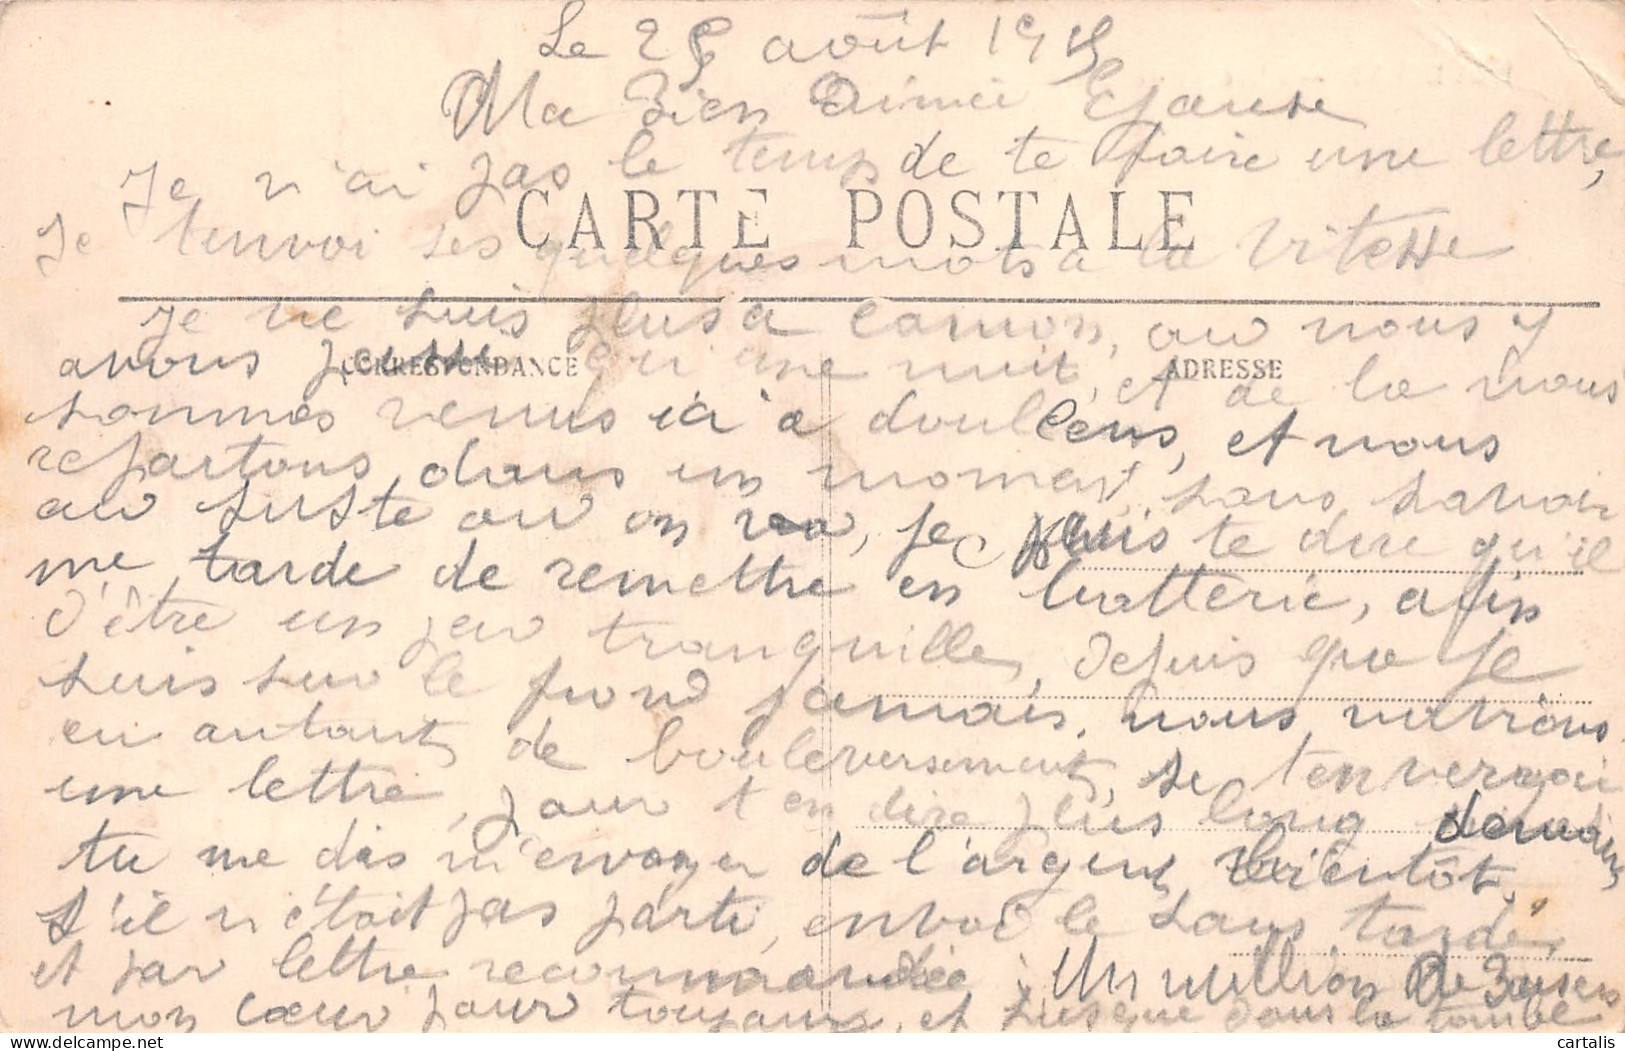 Le 25 août 1915
Ma Bien Aimée
Je n'ai pas le temps de te faire une lettre,
CARTE POSTALE
Je t'envoi ses quelques mots a la Vitesse
Je ne suis plus a Camon, ou nous y
CORRESPONDANCE
ADRESSE
avons qu'une nuit, et de la nous
sommes venus ici a doullens, et nous
repartons dans un moment sans savoir
au juste ou on va, je puis te dire qu'il
me tarde de remettre en batterie, afin
d'être un peu tranquille, depuis que je
suis sur le front jamais, nous
en autant de bouleversement, je t'enverrai
une lettre, pour t'en dire plus long demain
tu me dis m'envoyer de l'argent bientôt,
s'il n'était pas parti, envoi le sans tarder
et par lettre recommandée Un million De Baisers
mon cœur pour toujours, et jusque dans la tombe
cartalis
delcampe.net